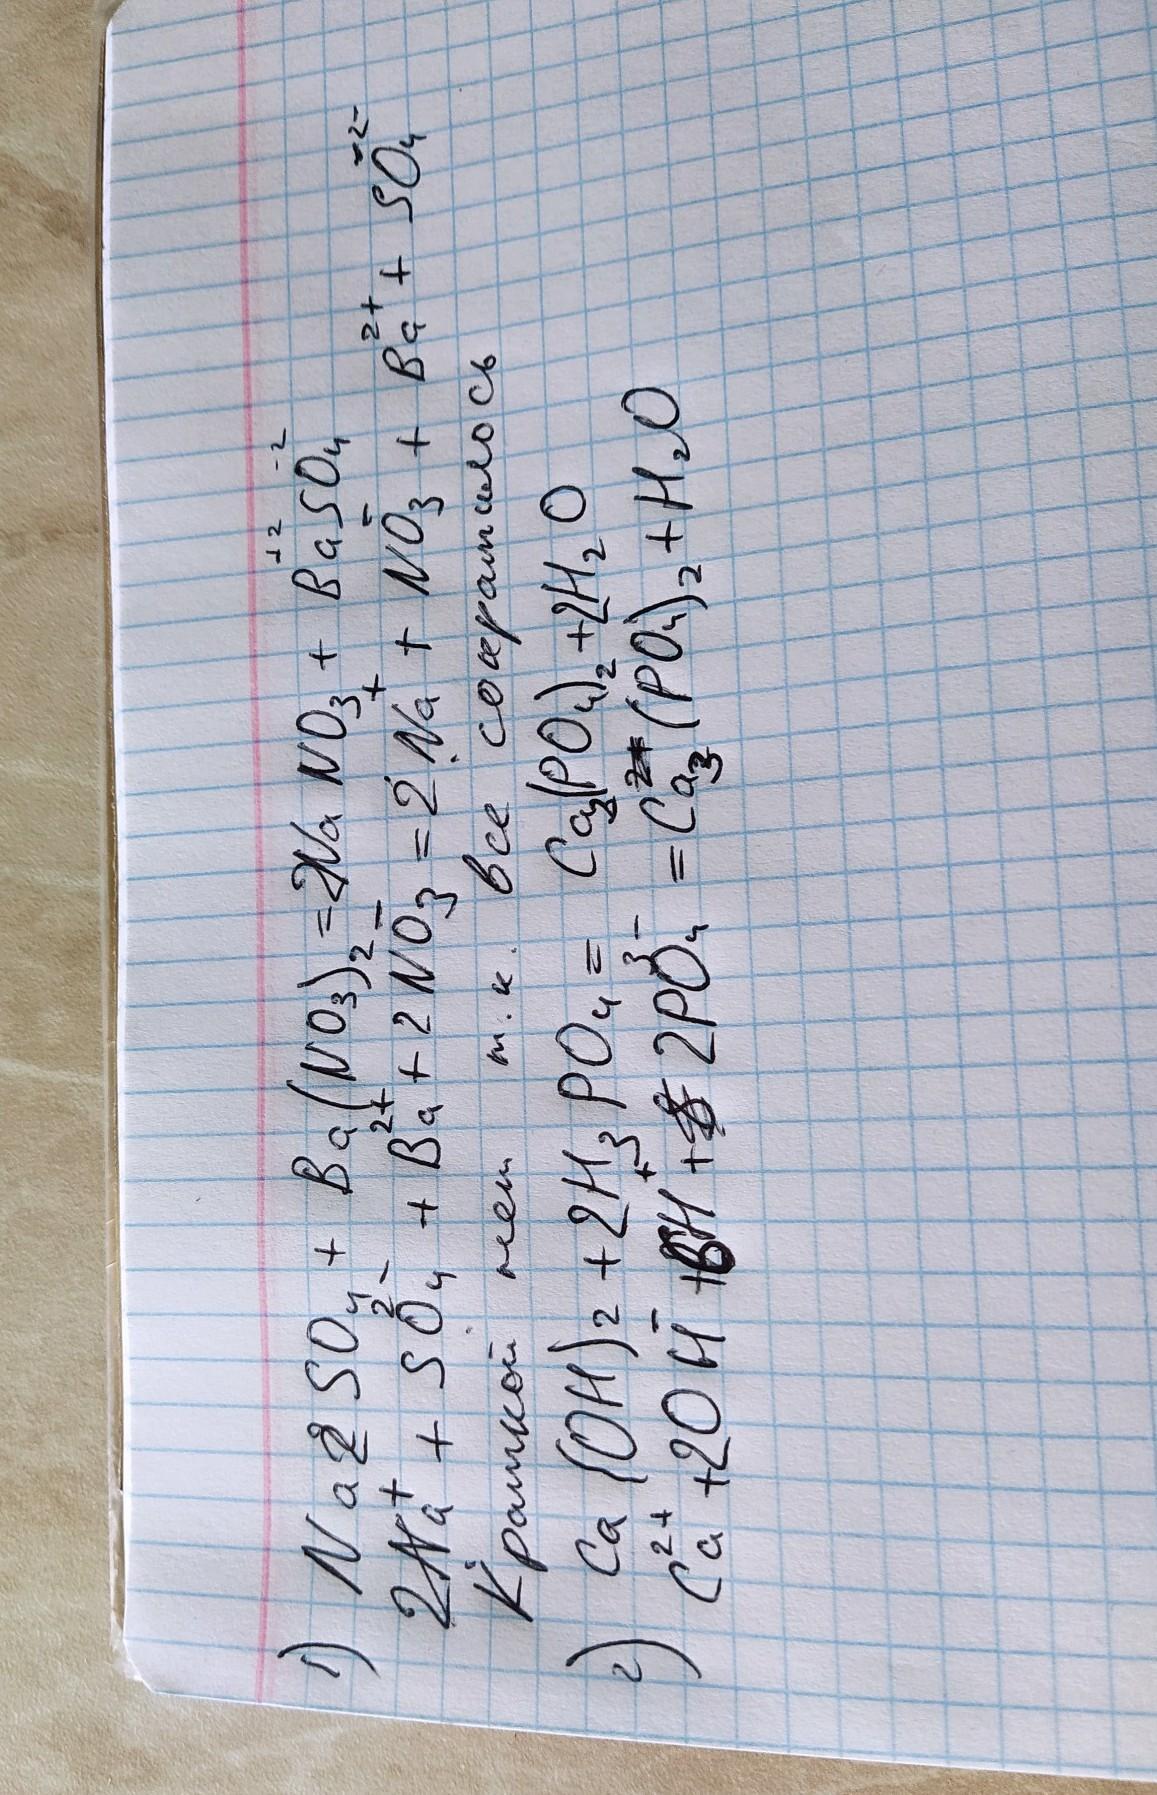 1) Na2SO4 + Ba(NO3)2 = 2NaNO3 + Ba⁺²SO4⁻²
2Na⁺ + SO4²⁻ + Ba²⁺ + 2NO3⁻ = 2Na⁺ + NO3⁻ + Ba²⁺ + SO4²⁻
Краткой нет т.к. все сократилось
2) Ca(OH)2 + 2H3PO4 = Ca3(PO4)2 + 2H2O
Ca²⁺ + 2OH⁻ + 6H⁺ + 2PO4³⁻ = Ca3(PO4)2 + H2O